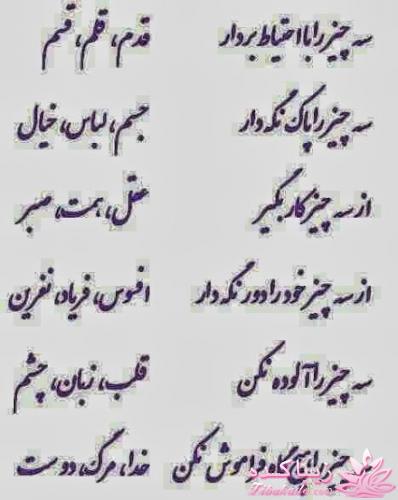 سه چیز را با احتیاط بردار قدم، قلم، قسم
سه چیز را پاک نگه دار جسم، لباس، خیال
از سه چیز کار بگیر عقل، همت، صبر
از سه چیز خود را دور نگه دار افسوس، فریاد، نفرین
سه چیز را آلوده نکن قلب، زبان، چشم
سه چیز را هیچگاه فراموش نکن خدا، مرگ، دوست
زیباکده
Zibakade.com